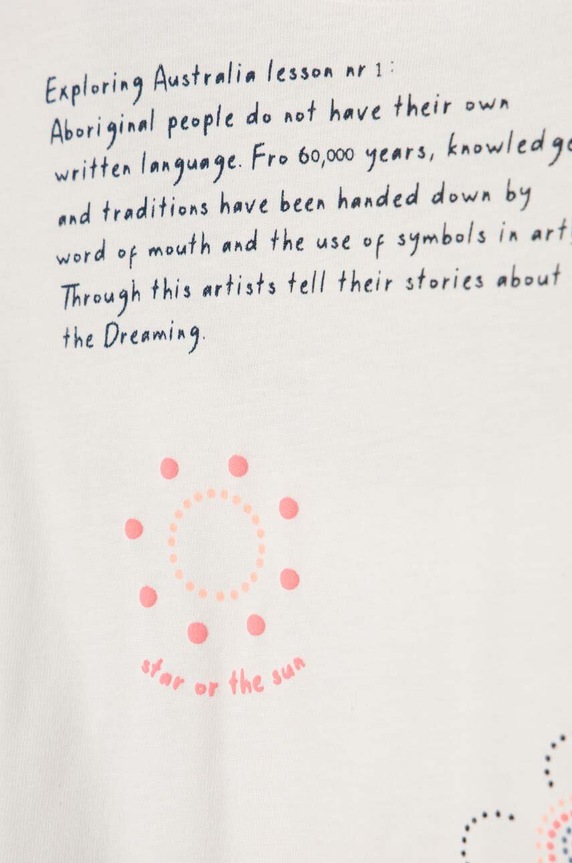 Exploring Australia lesson nr 1:
Aboriginal people do not have their own
written language. Fro 60,000 years, knowledge
and traditions have been handed down by
word of mouth and the use of symbols in art.
Through this artists tell their stories about
the Dreaming.
star or the sun